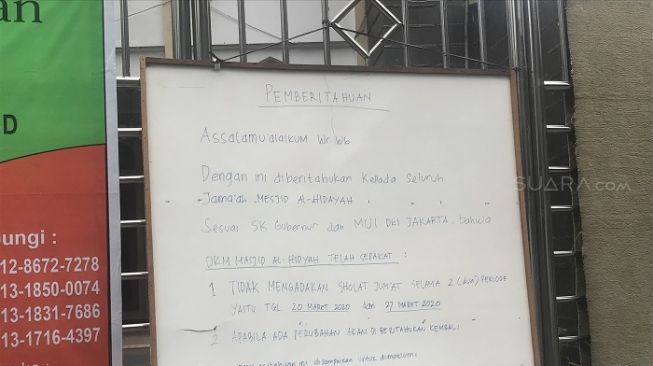 an
D
ungi :
12-8672-7278
13-1850-0074
13-1831-7686
13-1716-4397
PEMBERITAHUAN
ASSALAMU'ALAIKUM Wr.Wb
Dengan ini diberitahukan Kepada Seluruh
Jama'ah MESJID AL-HIDAYAH
Sesuai SK Gubernur dan MUI DKI JAKARTA bahwa
DKM MASJID AL-HIDYAH TELAH SEPAKAT :
1 TIDAK MENGADAKAN SHOLAT JUM'AT SELAMA 2 (dua) PERIODE
YAITU TGL 20 MARET 2020 dan 27 MARET 2020
2. APABILA ADA PERUBAHAN AKAN DI BERITAHUKAN KEMBALI
ini disampaikan untuk dimaklumi
SUARA.com